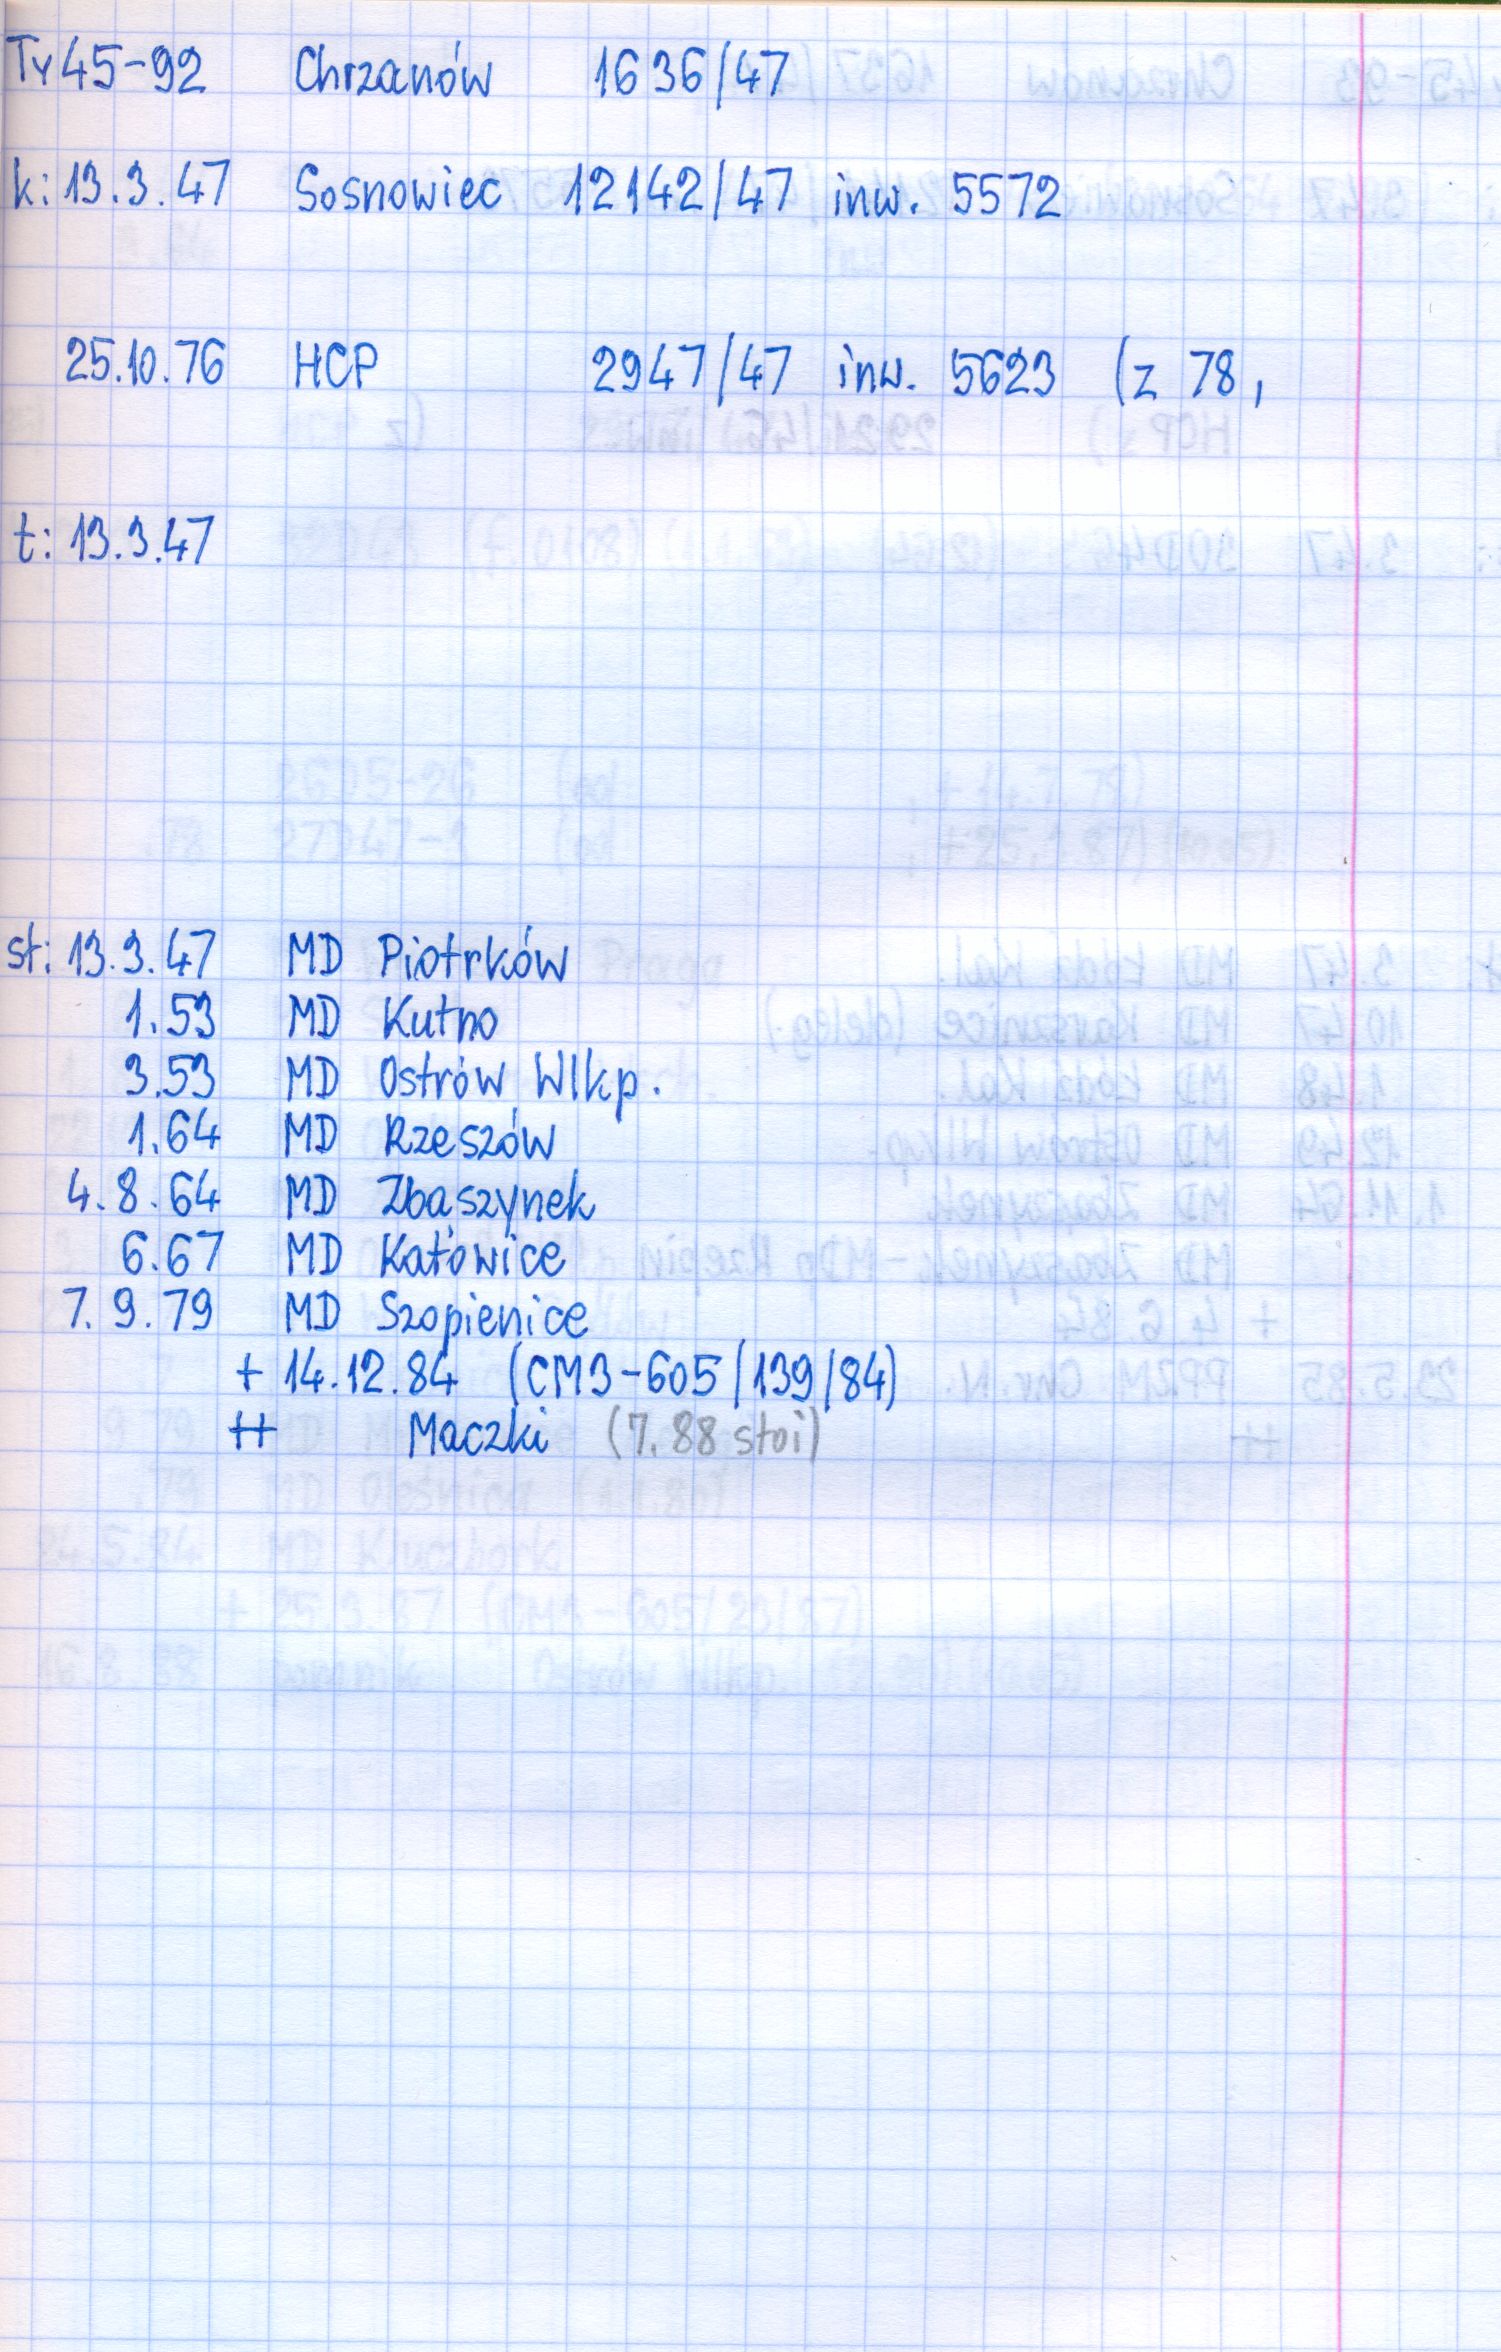 Ty45-92 Chrzanów 1636/47
k: 13.3.47 Sosnowiec 12142/47 inw. 5572
25.10.76 HCP 2947/47 inw. 5623 (z 78,
t: 13.3.47
st: 13.3.47 MD Piotrków
1.53 MD Kutno
3.53 MD Ostrów Wlkp.
1.64 MD Rzeszów
4.8.64 MD Zbąszynek
6.67 MD Katowice
7.9.79 MD Szopienice
+ 14.12.84 (CM3-605/139/84)
++ Maczki (7.88 stoi)